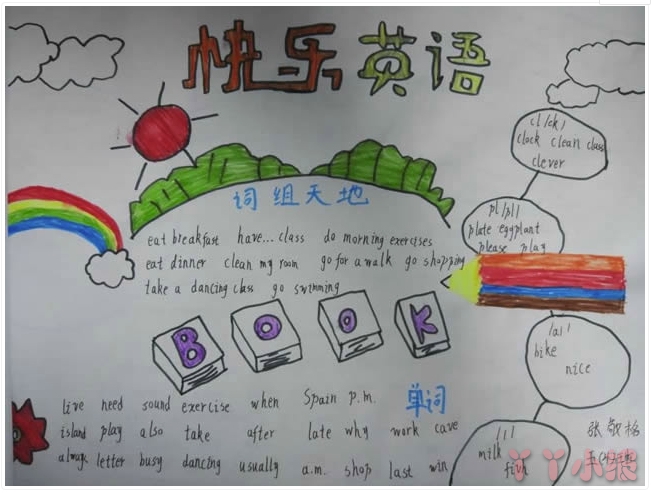 快乐英语
cl /ck/
clock clean class
clever
词组天地
pl /pl/
plate eggplant
please play
eat breakfast have... class do morning exercises
eat dinner clean my room go for a walk go shopping
take a dancing class go swimming
BOOK
/ai/
bike
nice
单词
live need sound exercise when Spain p.m.
island play also take after late why work cave
always letter busy dancing usually a.m. shop last win
/i/
milk
张敬
丫丫小熊